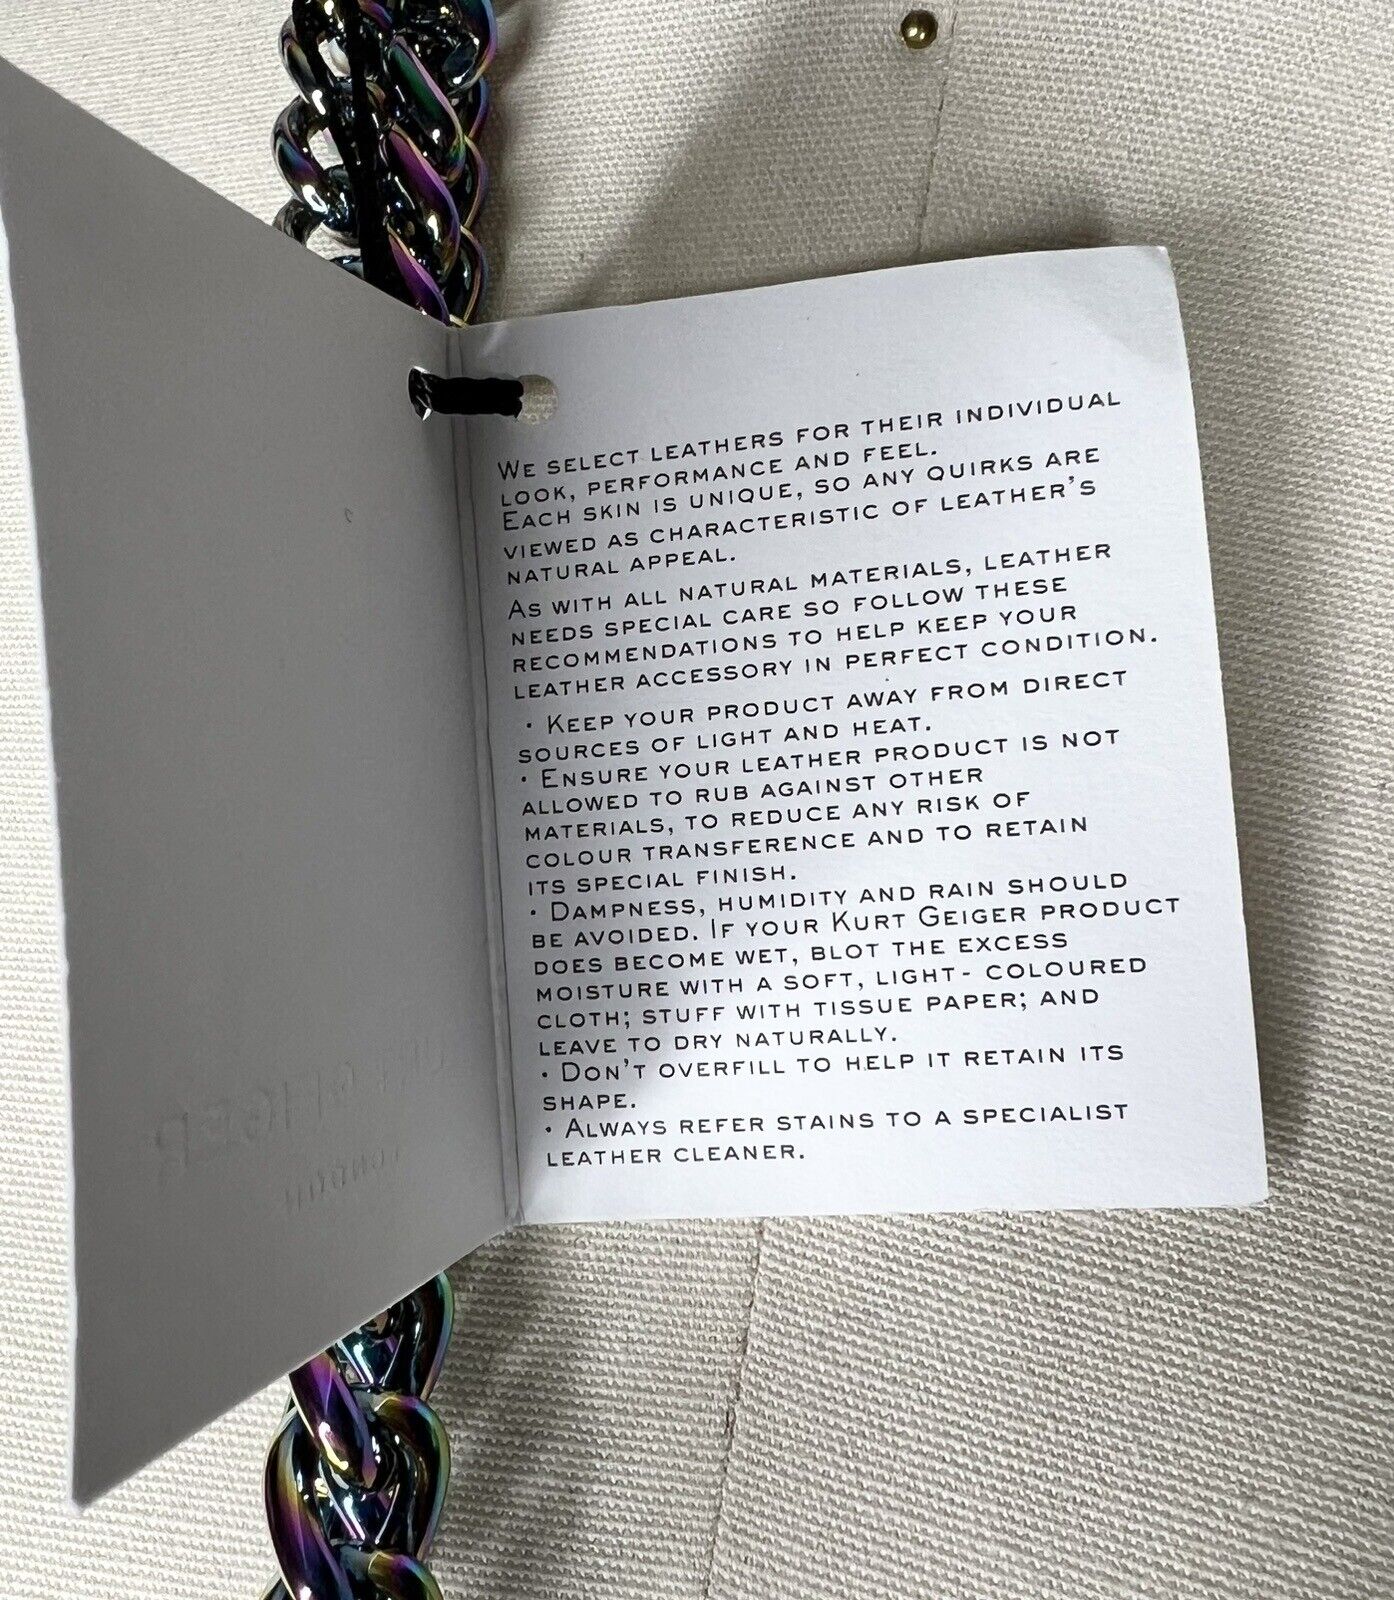 We select leathers for their individual
look, performance and feel.
Each skin is unique, so any quirks are
viewed as characteristic of leather's
natural appeal.
As with all natural materials, leather
needs special care so follow these
recommendations to help keep your
leather accessory in perfect condition.
• Keep your product away from direct
sources of light and heat.
• Ensure your leather product is not
allowed to rub against other
materials, to reduce any risk of
colour transference and to retain
its special finish.
• Dampness, humidity and rain should
be avoided. If your Kurt Geiger product
does become wet, blot the excess
moisture with a soft, light- coloured
cloth; stuff with tissue paper; and
leave to dry naturally.
• Don't overfill to help it retain its
shape.
• Always refer stains to a specialist
leather cleaner.